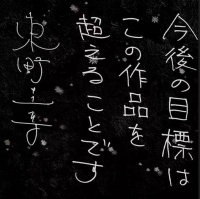 今後の目標は
この作品を
超えることです
東町一す